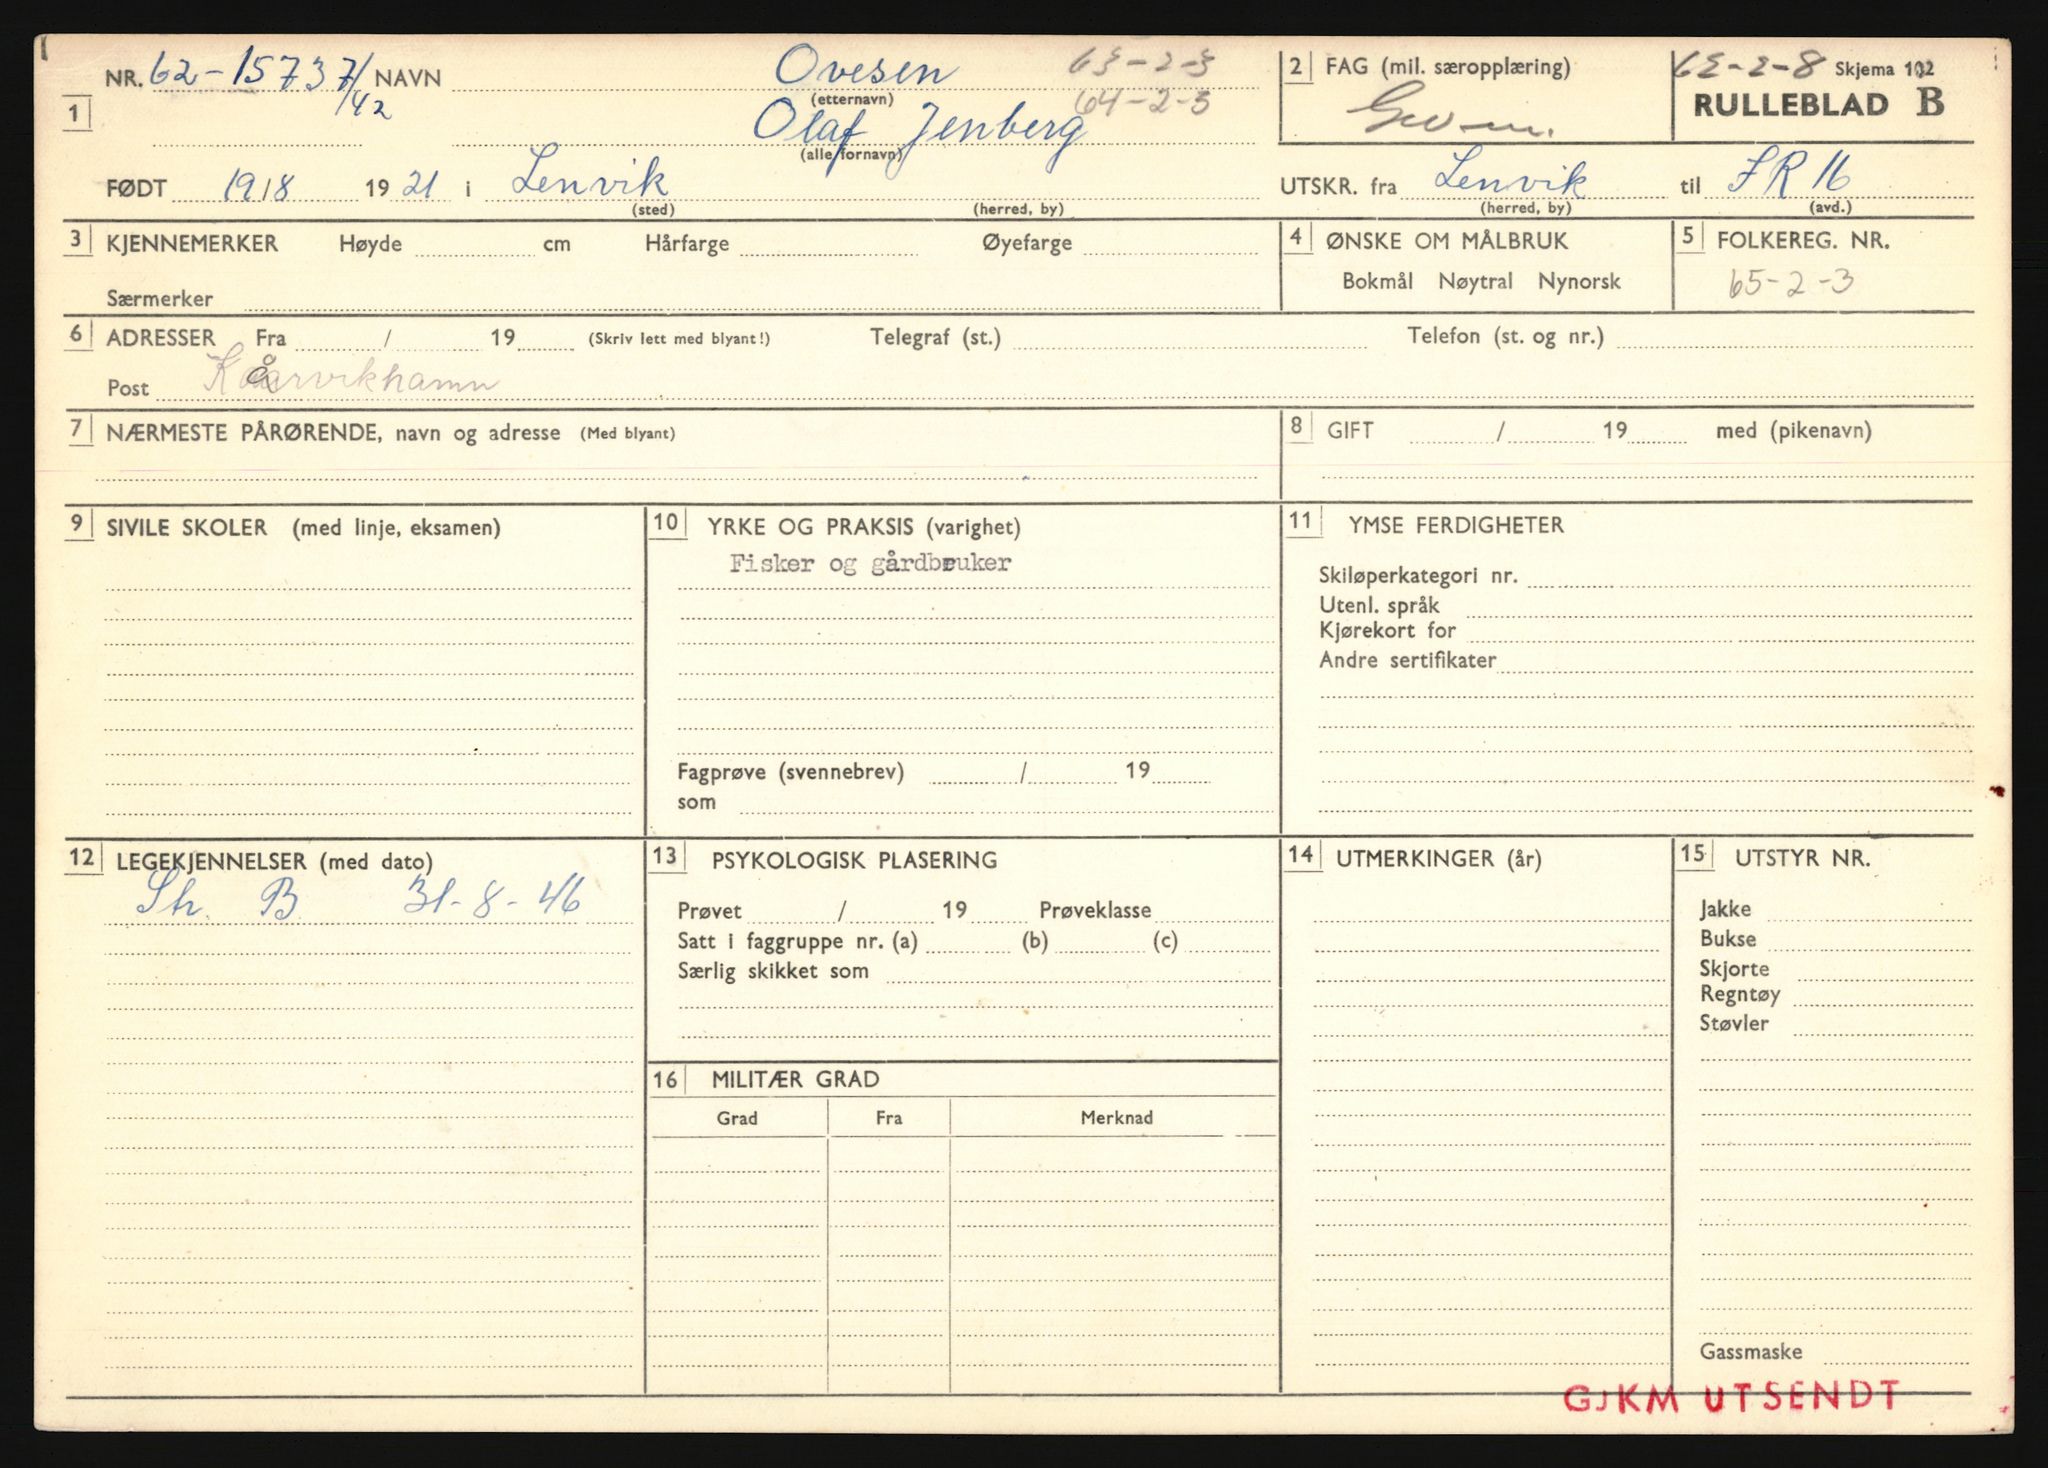 NR. 62-15737/42 NAVN Ovesen 63-2-3
(etternavn) 64-2-3
1 Olaf Jenberg
(alle fornavn)
FØDT 19/8 1921 i Lenvik
(sted) (herred, by)
2 FAG (mil. særopplæring)
62-2-8 Skjema 102
RULLEBLAD B
UTSKR. fra Lenvik til IR 16
(herred, by) (avd.)
3 KJENNEMERKER Høyde cm Hårfarge Øyefarge
Særmerker
4 ØNSKE OM MÅLBRUK
Bokmål Nøytral Nynorsk
5 FOLKEREG. NR.
65-2-3
6 ADRESSER Fra / 19 (Skriv lett med blyant!) Telegraf (st.) Telefon (st. og nr.)
Post Kårvikhamn
7 NÆRMESTE PÅRØRENDE, navn og adresse (Med blyant)
8 GIFT / 19 med (pikenavn)
9 SIVILE SKOLER (med linje, eksamen)
10 YRKE OG PRAKSIS (varighet)
Fisker og gårdbruker
Fagprøve (svennebrev) / 19
som
11 YMSE FERDIGHETER
Skiløperkategori nr.
Utenl. språk
Kjørekort for
Andre sertifikater
12 LEGEKJENNELSER (med dato)
Sth. B 31-8-46
13 PSYKOLOGISK PLASERING
Prøvet / 19 Prøveklasse
Satt i faggruppe nr. (a) (b) (c)
Særlig skikket som
14 UTMERKINGER (år)
15 UTSTYR NR.
Jakke
Bukse
Skjorte
Regntøy
Støvler
Gassmaske
16 MILITÆR GRAD
Grad Fra Merknad
GJKM UTSENDT